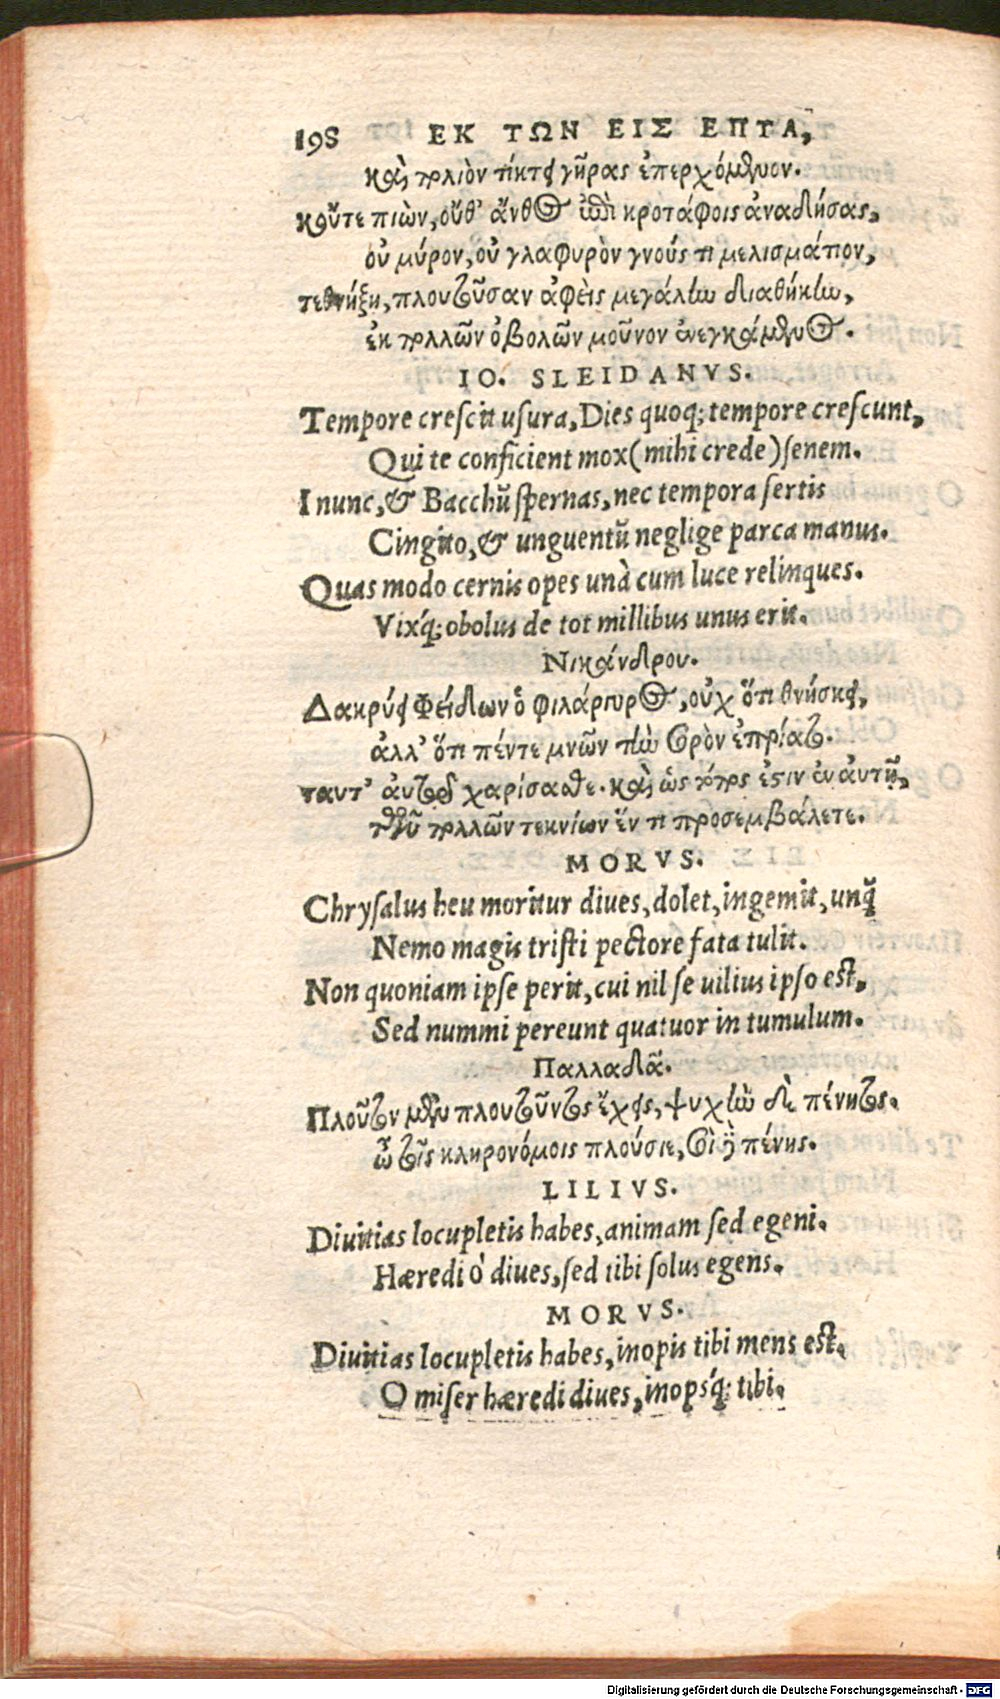 198 ΕΚ ΤΩΝ ΕΙΣ ΕΠΤΑ,
καὶ πολιὸν τίκτει γῆρας ἐπερχόμενον.
κοὔτε πιὼν, οὔθ' ἄνθος ἐπὶ κροτάφοις ἀναδήσας,
οὐ μύρον, οὐ γλαφυρὸν γνούς τι μελισμάτιον,
τεθνήξῃ, πλουτοῦσαν ἀφεὶς μεγάλην διαθήκην,
ἐκ πολλῶν ὀβολῶν μοῦνον ἐνεγκάμενος.
IO. SLEIDANVS.
Tempore crescit usura, Dies quoq; tempore crescunt,
Qui te conficient mox (mihi crede) senem.
I nunc, & Bacchũ spernas, nec tempora sertis
Cingito, & unguentũ neglige parca manus.
Quas modo cernis opes unà cum luce relinques.
Vixq́; obolus de tot millibus unus erit.
Νικάνδρου.
Δακρύει Φείδων ὁ φιλάργυρος, οὐχ ὅτι θνήσκει,
ἀλλ' ὅτι πέντε μνῶν τὴν σορὸν ἐπρίατο.
ταυτ' αὐτῷ χαρίσασθε. καὶ ὡς τόπος ἐστιν ἐν αὐτῇ,
τῶν πολλῶν τεκνίων ἕν τι προσεμβάλετε.
MORVS.
Chrysalus heu moritur diues, dolet, ingemit, unq̃
Nemo magis tristi pectore fata tulit.
Non quoniam ipse perit, cui nil se uilius ipso est,
Sed nummi pereunt quatuor in tumulum.
Παλλαδᾶ.
Πλοῦτον μὲν πλουτοῦντος ἔχεις, ψυχὴν δὲ πένητος.
ὦ τοῖς κληρονόμοις πλούσιε, σοὶ δὲ πένης.
LILIVS.
Diuitias locupletis habes, animam sed egeni.
Hæredi ó diues, sed tibi solus egens.
MORVS.
Diuitias locupletis habes, inopis tibi mens est.
O miser hæredi diues, inopsq́; tibi.
Digitalisierung gefördert durch die Deutsche Forschungsgemeinschaft - DFG